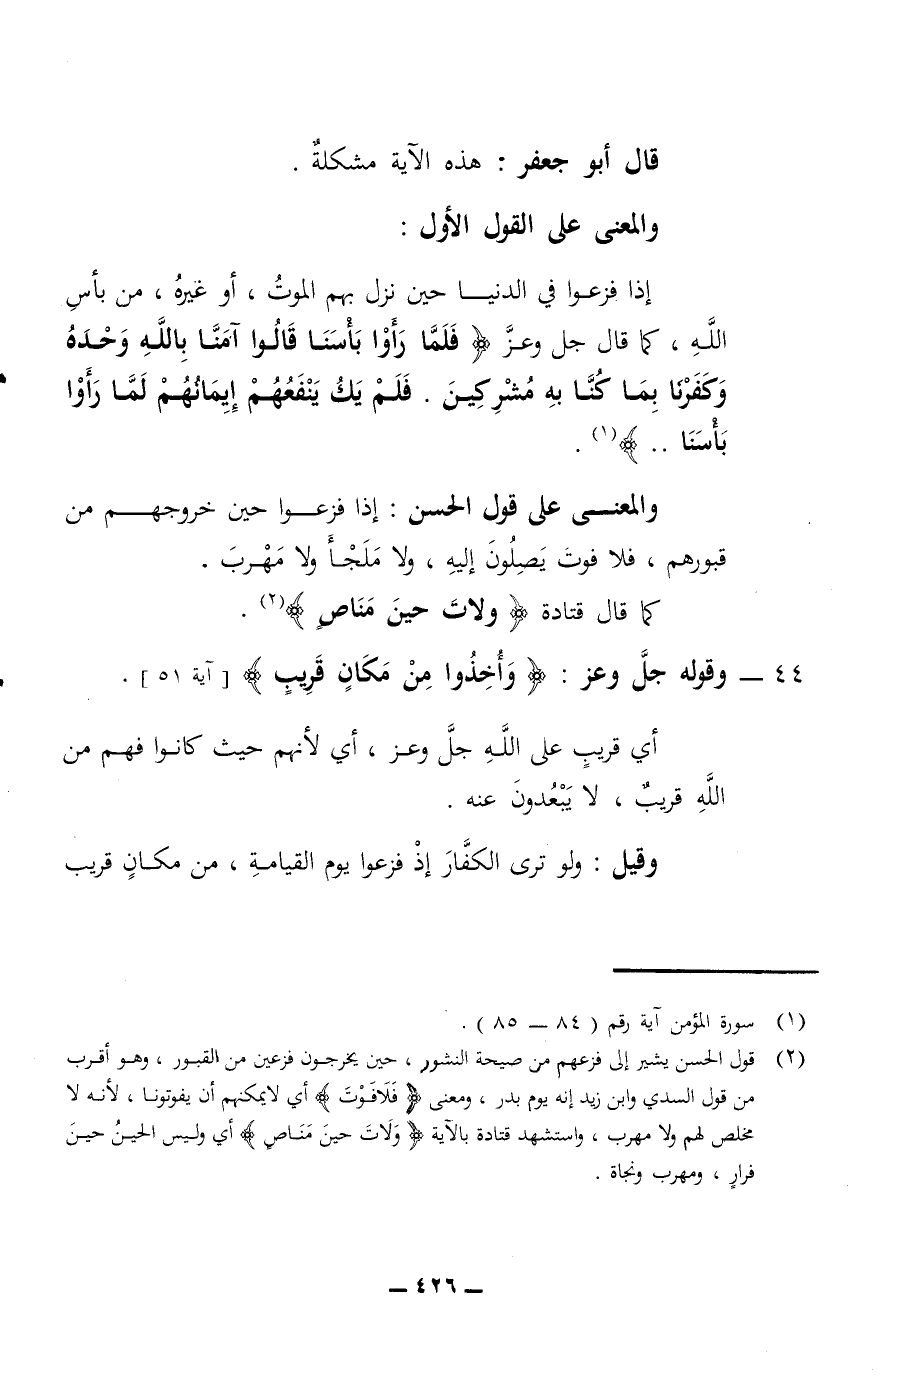 قال أبو جعفر : هذه الآية مشكلةٌ .
والمعنى على القول الأول :
إذا فزعوا في الدنيا حين نزل بهم الموتُ ، أو غيرهُ ، من بأسِ
اللَّهِ ، كما قال جل وعزَّ ﴿ فَلَمَّا رَأَوْا بَأْسَنَا قَالُوا آمَنَّا بِاللَّهِ وَحْدَهُ
وَكَفَرْنَا بِمَا كُنَّا بِهِ مُشْرِكِينَ . فَلَمْ يَكُ يَنْفَعُهُمْ إِيمَانُهُمْ لَمَّا رَأَوْا
بَأْسَنَا .. ﴾(١) .
والمعنى على قول الحسن : إذا فزعوا حين خروجهم من
قبورهم ، فلا فوتَ يَصِلُونَ إليهِ ، ولا مَلَجْأَ ولا مَهْربَ .
كما قال قتادة ﴿ ولاتَ حينَ مَنَاصٍ ﴾(٢) .
٤٤ ــ وقوله جلَّ وعز : ﴿ وَأُخِذُوا مِنْ مَكَانٍ قَرِيبٍ ﴾ [ آية ٥١ ] .
أي قريبٍ على اللَّهِ جلَّ وعز ، أي لأنهم حيث كانوا فهم من
اللَّهِ قريبٌ ، لا يَبْعُدونَ عنه .
وقيل : ولو ترى الكفَّارَ إذْ فزعوا يوم القيامةِ ، من مكانٍ قريب
(١) سورة المؤمن آية رقم ( ٨٤ ــ ٨٥ ) .
(٢) قول الحسن يشير إلى فزعهم من صيحة النشور ، حين يخرجون فزعين من القبور ، وهو أقرب
من قول السدي وابن زيد إنه يوم بدر ، ومعنى ﴿ فَلَافَوْتَ ﴾ أي لايمكنهم أن يفوتونا ، لأنه لا
مخلص لهم ولا مهرب ، واستشهد قتادة بالآية ﴿ وَلَاتَ حينَ مَنَاصٍ ﴾ أي وليس الحينُ حينَ
فرارٍ ، ومهرب ونجاة .
ــ ٤٢٦ ــ